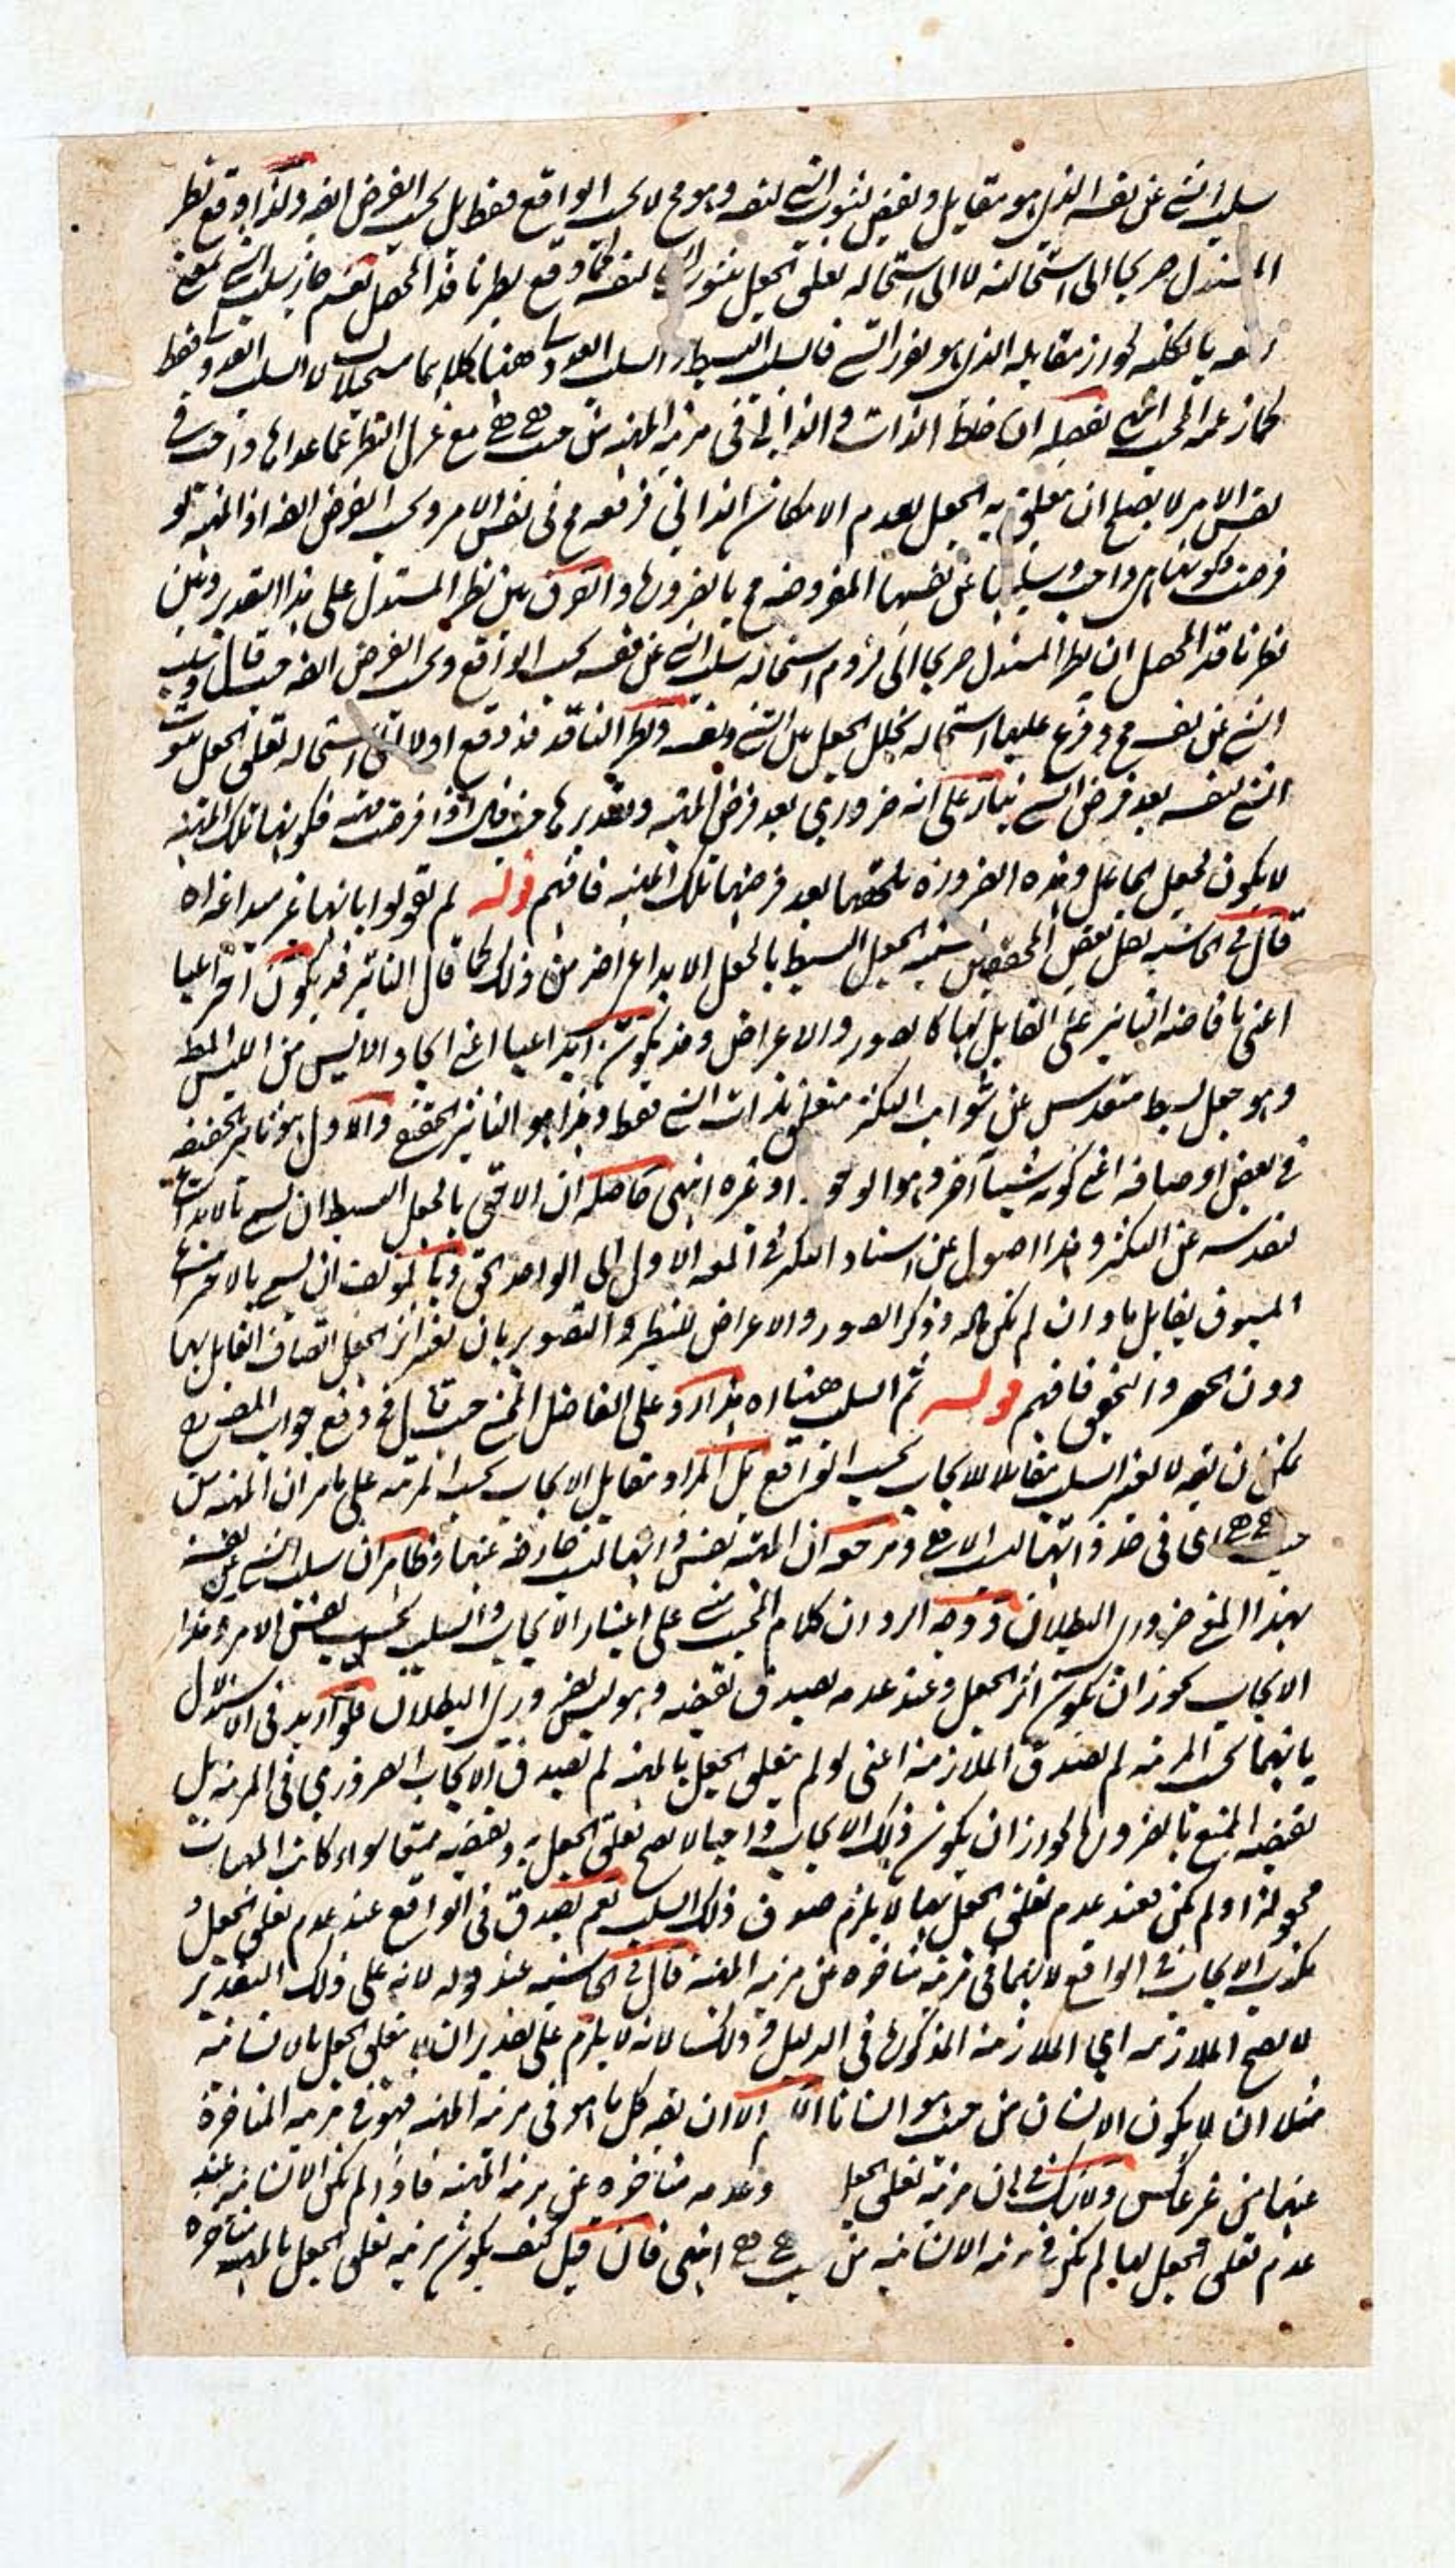 سلب الشي عن نفسه الذي هو مقابل ونقيض لثبوت الشي لنفسه وهو مح لا بحسب الواقع فقط بل بحسب الفرض ايضه ولذا وقع نظر
المستدل صريحا الى استحالته لا الى استحاله تعلق الجعل بثبوت الشي لنفسه كما وقع نظر ناقد المحصل نعم جاز سلب الشي بمعنى
رفعه بالكليه لجواز مقابله الذي هو تقرر الشي فالسلب البسيط والسلب العدولي ههنا كلاهما مستحيلان لا السلب العدولي فقط
كما زعمه المحب تفصيله ان خلط الذات والذاتي في مرتبه المهيه من حيث هي هي مع عزل النظر عما عداها واجب في
نفس الامر لا يصلح ان يتعلق به الجعل لعدم الامكان الذاتي فرفعه مح في نفس الامر وبحسب الفرض ايضه اذ المهيه لو
فرضت فكونها هي واجب وسلبها عن نفسها المفروضه مح بالضروره والفرق بين نظر المستدل على هذا التقدير وبين
نظر ناقد المحصل ان نظر المستدل صريحا الى لزوم استحاله سلب الشي عن نفسه بحسب الواقع وبحسب الفرض ايضه حيث قال وسلب
الشي عن نفسه مح وفرع عليها استحاله تخلل الجعل بين الشي ونفسه ونظر الناقد قد وقع اولا الى استحاله تعلق الجعل بثبوت
الشي لنفسه بعد فرض الشي بناء على انه ضروري بعد فرض المهيه وتقديرها حيث قال اذا فرضت مهيه فكونها تلك المهيه
لا يكون بجعل الجاعل وهذه الضروره تلحقها بعد فرضها تلك المهيه فافهم قوله لم يقولوا بانها غير مبدا غه اه
قال في الحاشيه لعل بعض المحققين سميه الجعل البسيط بالجعل الابداعي اخذ من ذلك كما قال التاثير قد يكون اختراعيا
اعني بافاضه التاثير على القابل لها كالصور والاعراض وقد يكون ابداعيا اعني ايجاد الايس من الليس المطلق
وهو جعل بسيط متقدس عن شوائب التكثر متعلق بذات الشي فقط وهذا هو التاثير الحقيقي والاول هو تاثير بحقيقه
في بعض اوصافه اعني كونه شيئا آخر وهو الوجود او غيره انتهى حاصله ان الاحق بالجعل البسيط ان يسمى بالابداعي
لتقدسه عن التكثر وهذا اصول عن اسناد التكثر في المعنى الاولى الى الواحد الحق وبالمؤلف ان يسمى بالاختراعي
المسبوق بقابل ما وان لم يكن ماله وذكر الصور والاعراض للتنظير والتصوير بان يعتبر اثر الجعل اتصاف القابل بهما
دون الحصر والتحقيق فافهم قوله ثم السلب هنا اه هذا رد على الفاضل المح حيث قال في دفع جواب المص مع
يمكن ان يقه لا يعتبر السلب مقابلا للايجاب بحسب الواقع بل المراد مقابل الايجاب بحسب المرتبه على ما مر ان المهيه من
حيث هي هي في حد ذاتها ليست الا هي ومرجعه ان المهيه نفس ذاتها ليست خارجه عنها وظاهر ان سلب الشي عن نفسه
بهذا المعنى ضروري البطلان ووجه الرد ان كلام المجيب مبني على اعتبار الايجاب والسلب بحسب نفس الامر وهذا
الايجاب يجوز ان يكون اثر الجعل وعند عدمه يصدق نقيضه وهو ليس ضروري البطلان فلو اريد في الاستدلال
بانهما بحسب المرتبه لم تصدق الملازمه اعني لو لم يتعلق الجعل بالمهيه لم يصدق الايجاب الضروري في المرتبه بل
نقيضه الممتنع بالضروره لجواز ان يكون ذلك الايجاب واجبا لا يصح تعلق الجعل به ونقيضه ممتنعا سواء كانت المهيات
مجعوله او لم تكن فعند عدم تعلق الجعل بها لا يلزم صدق ذلك السلب نعم يصدق في الواقع عند عدم تعلق الجعل و
يكذب الايجاب في الواقع لانهما في مرتبه متاخره عن مرتبه المهيه قال في الحاشيه عند قوله لانه على ذلك التقدير
لا يصح الملازمه اي الملازمه المذكوره في الدليل وذلك لانه لا يلزم على تقدير ان لا يتعلق الجعل بالانسانيه
مثلا ان لا يكون الانسان من حيث هو انسانا الا ان يقه كل ما هو في مرتبه المهيه فهو في مرتبه المتاخره
عنها من غير عكس ولا شك في ان مرتبه تعلق الجعل وعدمه متاخره عن مرتبه المهيه فاذا لم تكن الانسانيه عند
عدم تعلق الجعل بها لم تكن في مرتبه الانسانيه من حيث هي هي انتهى فان قيل كيف يكون مرتبه تعلق الجعل بالمهيه متاخره